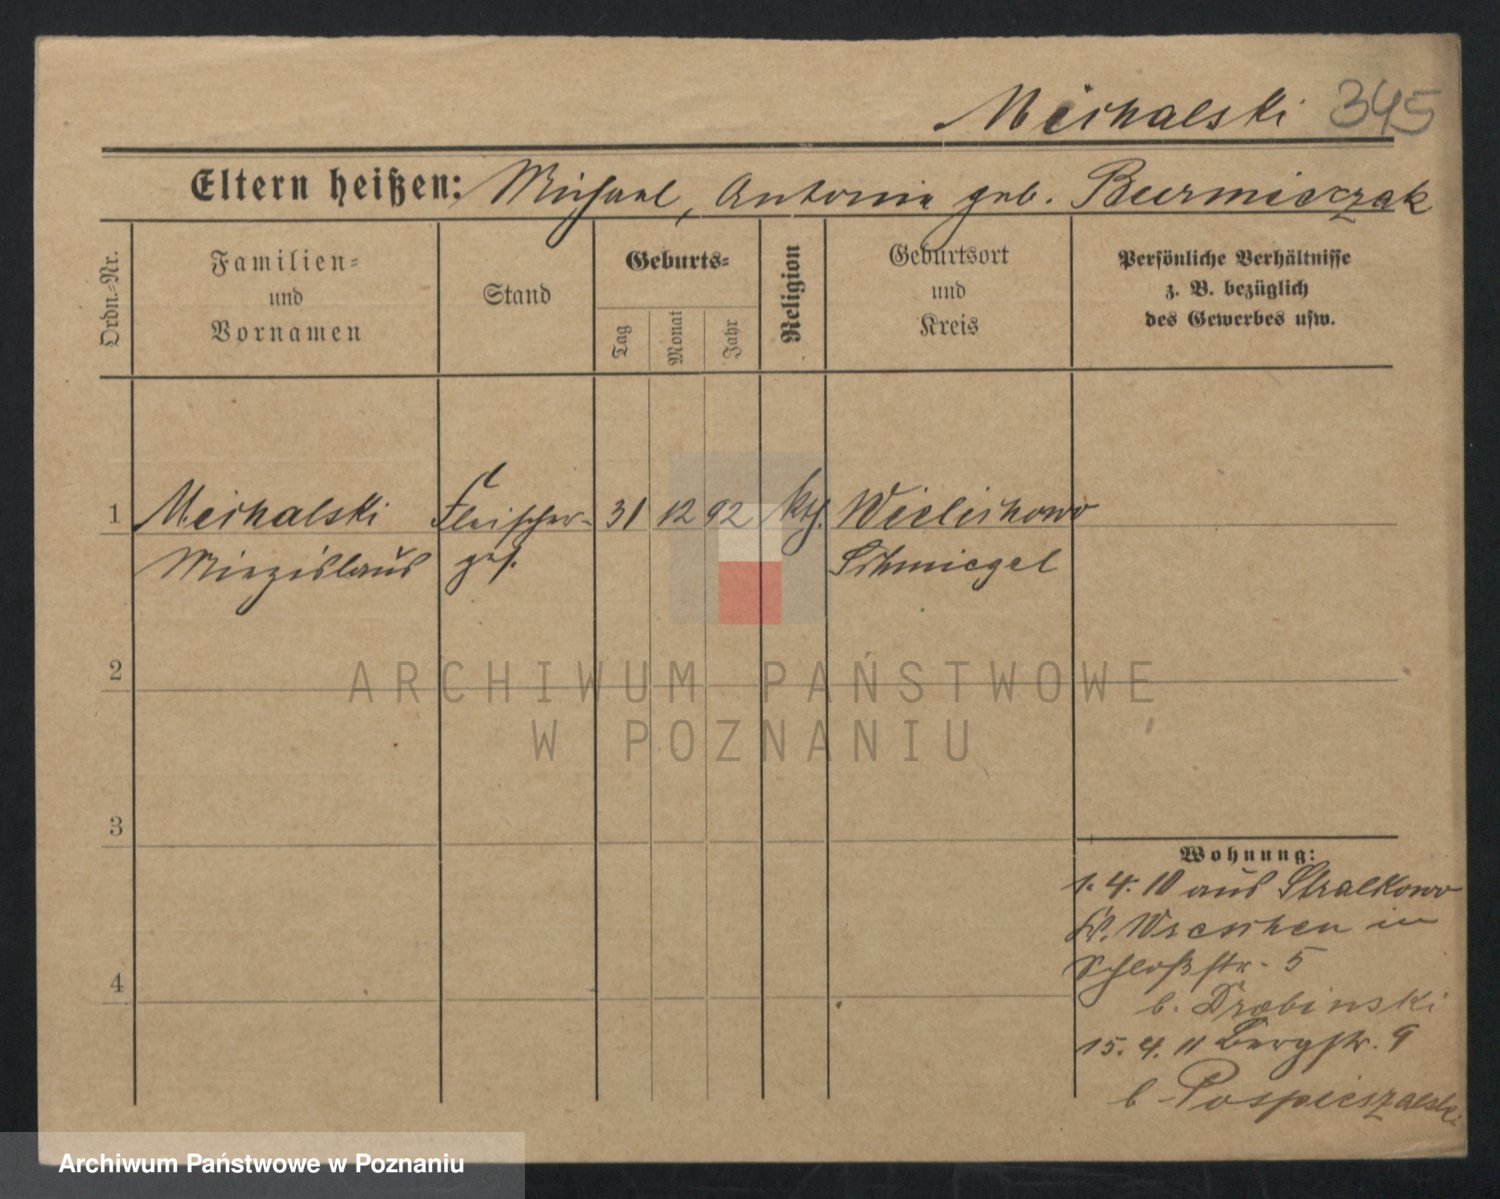 Meihalski 345
Eltern heißen: Michael, Antonie geb. Burmiczak
Ordn.-Nr.
Familien-
und
Vornamen
Stand
Geburts-
Tag
Monat
Jahr
Religion
Geburtsort
und
Kreis
Persönliche Verhältnisse
z. B. bezüglich
des Gewerbes usw.
1 Meihalski Fleischer- 31 12 92 kth. Wielichowo
Miezislaus ges. Schmiegel
2
ARCHIWUM PAŃSTWOWE
W POZNANIU
3
Wohnung:
1. 4. 10 aus Stralkowo
Kr. Wreschen in
Schloßstr. 5
b. Drobinski
4
15. 4. 11 Bergstr. 9
b. Pospieszalski
Archiwum Państwowe w Poznaniu